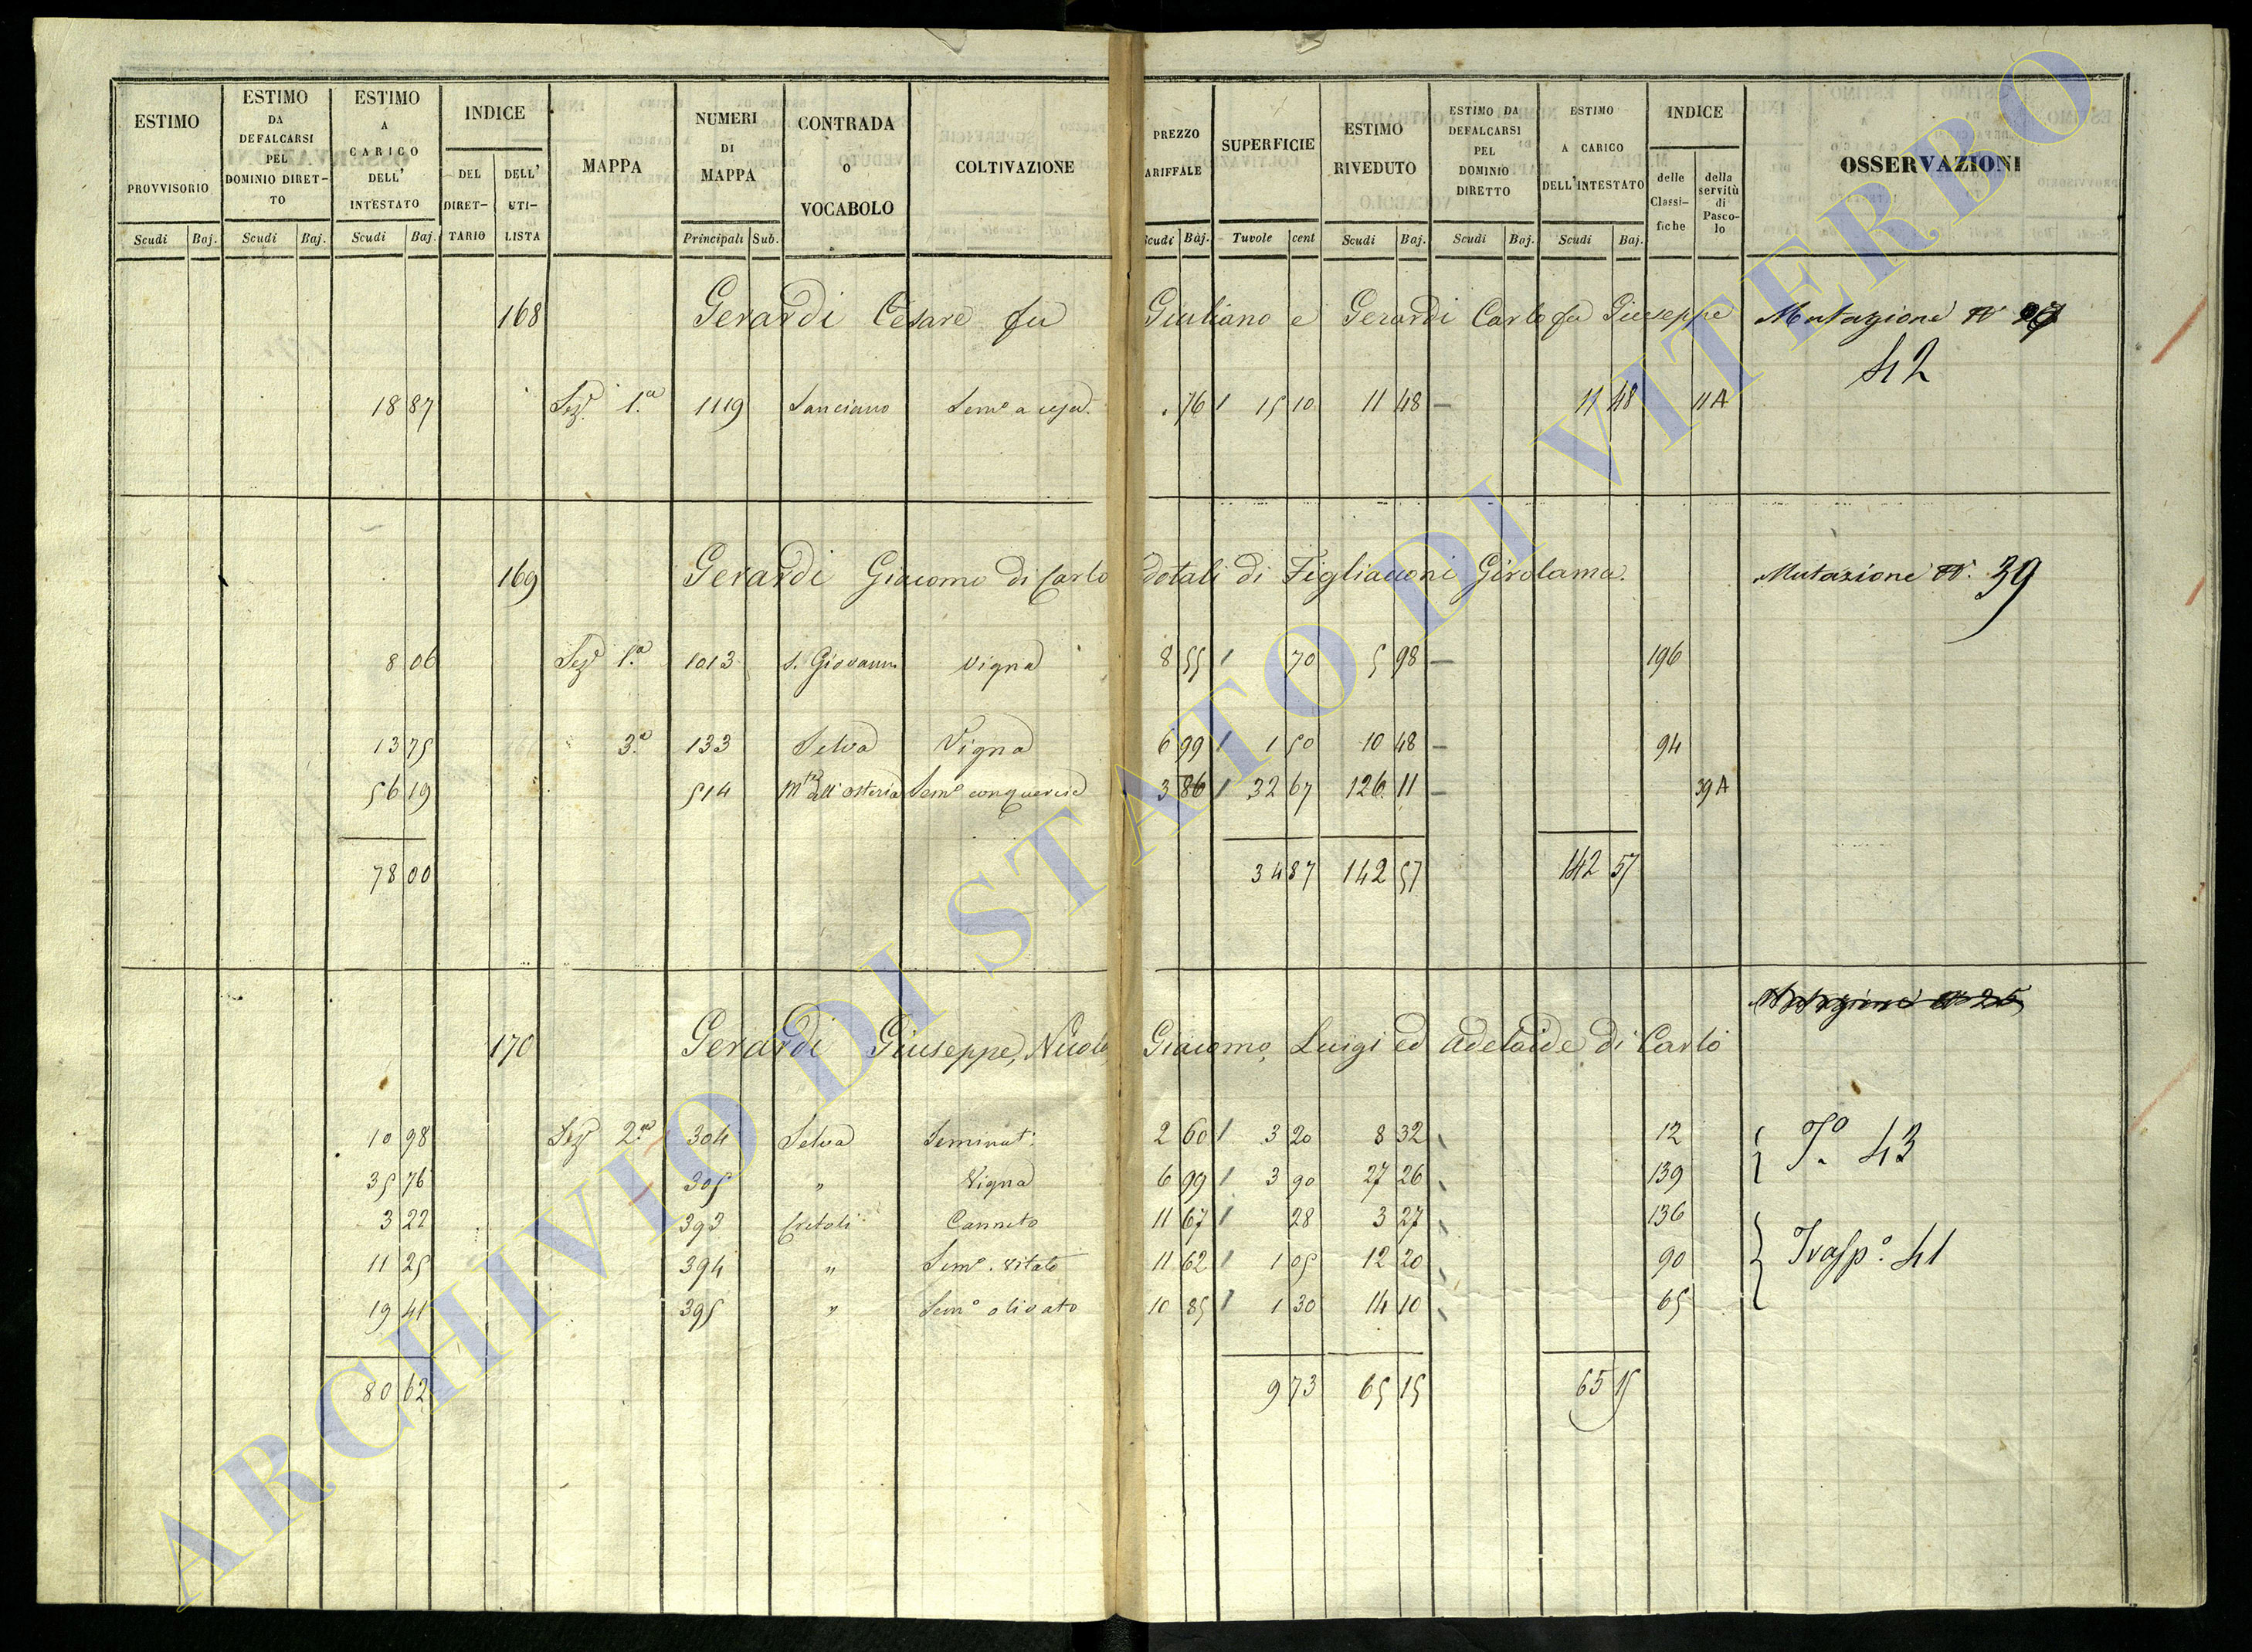 ESTIMO PROVVISORIO | ESTIMO DA DEFALCARSI PEL DOMINIO DIRET-TO | ESTIMO A CARICO DELL' INTESTATO | INDICE DEL DIRET-TARIO | DELL' UTI-LISTA | MAPPA | NUMERI DI MAPPA | CONTRADA O VOCABOLO | COLTIVAZIONE | PREZZO ARIFFALE | SUPERFICIE | ESTIMO RIVEDUTO | ESTIMO DA DEFALCARSI PEL DOMINIO DIRETTO | ESTIMO A CARICO DELL'INTESTATO | INDICE delle Classi-fiche | della servitù di Pasco-lo | OSSERVAZIONI
Scudi Baj. Scudi Baj. Scudi Baj. Principali Sub. Scudi Baj. Tavole cent Scudi Baj. Scudi Baj. Scudi Baj.
168 Gerardi Cesare fu Giuliano e Gerardi Carlo fu Giuseppe Mutazione N°
42
18 87 Sez.e 1.a 1119 Lanciano Sem.o a 76 15 10 11 48 — 11 48 11A
169 Gerardi Giacomo di Carlo dotali di Figliaconi Girolama. Mutazione N°. 39
8 06 Sez.e 1.a 1013 S. Giovanni Vigna 8 55 70 5 98 — 196
13 75 3.a 133 Selva Vigna 6 99 1 50 10 48 — 94
56 19 514 dell'osteria Sem.o con querce 3 86 32 67 126 11 — 39A
78 00 34 87 142 57 142 57
Mutazione N° 25
170 Gerardi Giuseppe, Nicola, Giacomo, Luigi ed Adelaide di Carlo
10 98 Sez.e 2.a 304 Selva Seminat. 2 60 3 20 8 32 12 T.o 43
35 76 305 " Vigna 6 99 3 90 27 26 139
3 22 393 Cretoli Canneto 11 67 28 3 27 136
11 25 394 " Sem.o vitato 11 62 1 05 12 20 90 Trasp.o 41
19 41 395 " Sem.o olivato 10 85 1 30 14 10 65
80 62 9 73 65 15 65 15
ARCHIVIO DI STATO DI VITERBO